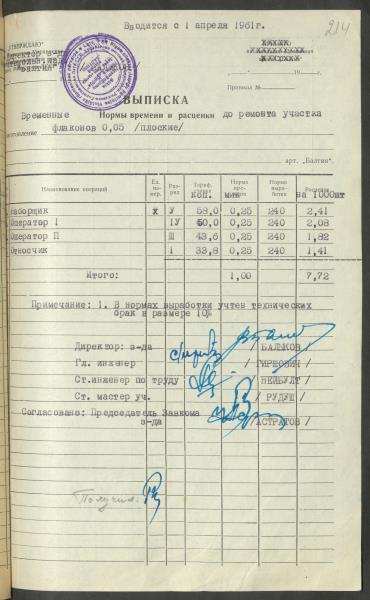 Вводится с 1 апреля 1961г.
214
"УТВЕРЖДАЮ"
Директор з-да
"БАЛТИЯ"
19 г.
Протокол №
ВЫПИСКА
Временные Нормы времени и расценки до ремонта участка
флаконов 0,05 /плоские/
арт. „Балтия".
Наименование операций Ед. измер. Разряд Тариф. коп. Норма времени мин. Норма выработки Расценка на 1000шт
наборщик х У 58,0 0,25 240 2,41
Оператор I IУ 50,0 0,25 240 2,08
Оператор П Ш 43,6 0,25 240 1,82
Относчик I 33,8 0,25 240 1,41
Итого: 1,00 7,72
Примечание: 1. В нормах выработки учтен технических
брак в размере 10%
Директор: з-да / БАЛЫКОВ /
Гл. инженер / ГИРШОВИЧ /
Ст.инженер по труду / НЕЙБУЛТ /
Ст. мастер уч. / РУДУШ /
Согласовано: Председатель Завкома
з-да /АСТРАТОВ /
Получил: